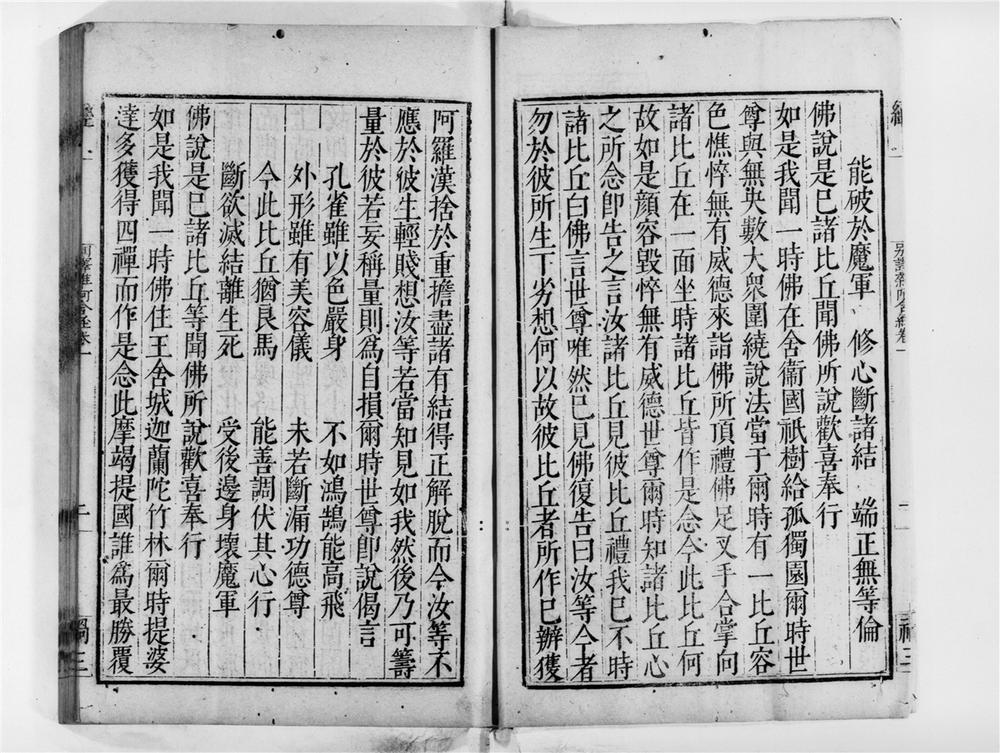 能破於魔軍　修心斷諸結　端正無等倫
佛說是已諸比丘聞佛所說歡喜奉行
如是我聞一時佛在舍衞國祇樹給孤獨園爾時世
尊與無央數大衆圍繞說法當于爾時有一比丘容
色憔悴無有威德來詣佛所頂禮佛足叉手合掌向
諸比丘在一面坐時諸比丘皆作是念今此比丘何
故如是顔容毀悴無有威德世尊爾時知諸比丘心
之所念卽告之言汝諸比丘見彼比丘禮我已不時
諸比丘白佛言世尊唯然已見佛復告曰汝等今者
勿於彼所生下劣想何以故彼比丘者所作已辦獲
阿羅漢捨於重擔盡諸有結得正解脫而今汝等不
應於彼生輕賤想汝等若當知見如我然後乃可籌
量於彼若妄稱量則爲自損爾時世尊卽說偈言
孔雀雖以色嚴身　不如鴻鵠能高飛
外形雖有美容儀　未若斷漏功德尊
今此比丘猶良馬　能善調伏其心行
斷欲滅結離生死　受後邊身壞魔軍
佛說是已諸比丘等聞佛所說歡喜奉行
如是我聞一時佛住王舍城迦蘭陀竹林爾時提婆
達多獲得四禪而作是念此摩竭提國誰爲最勝覆